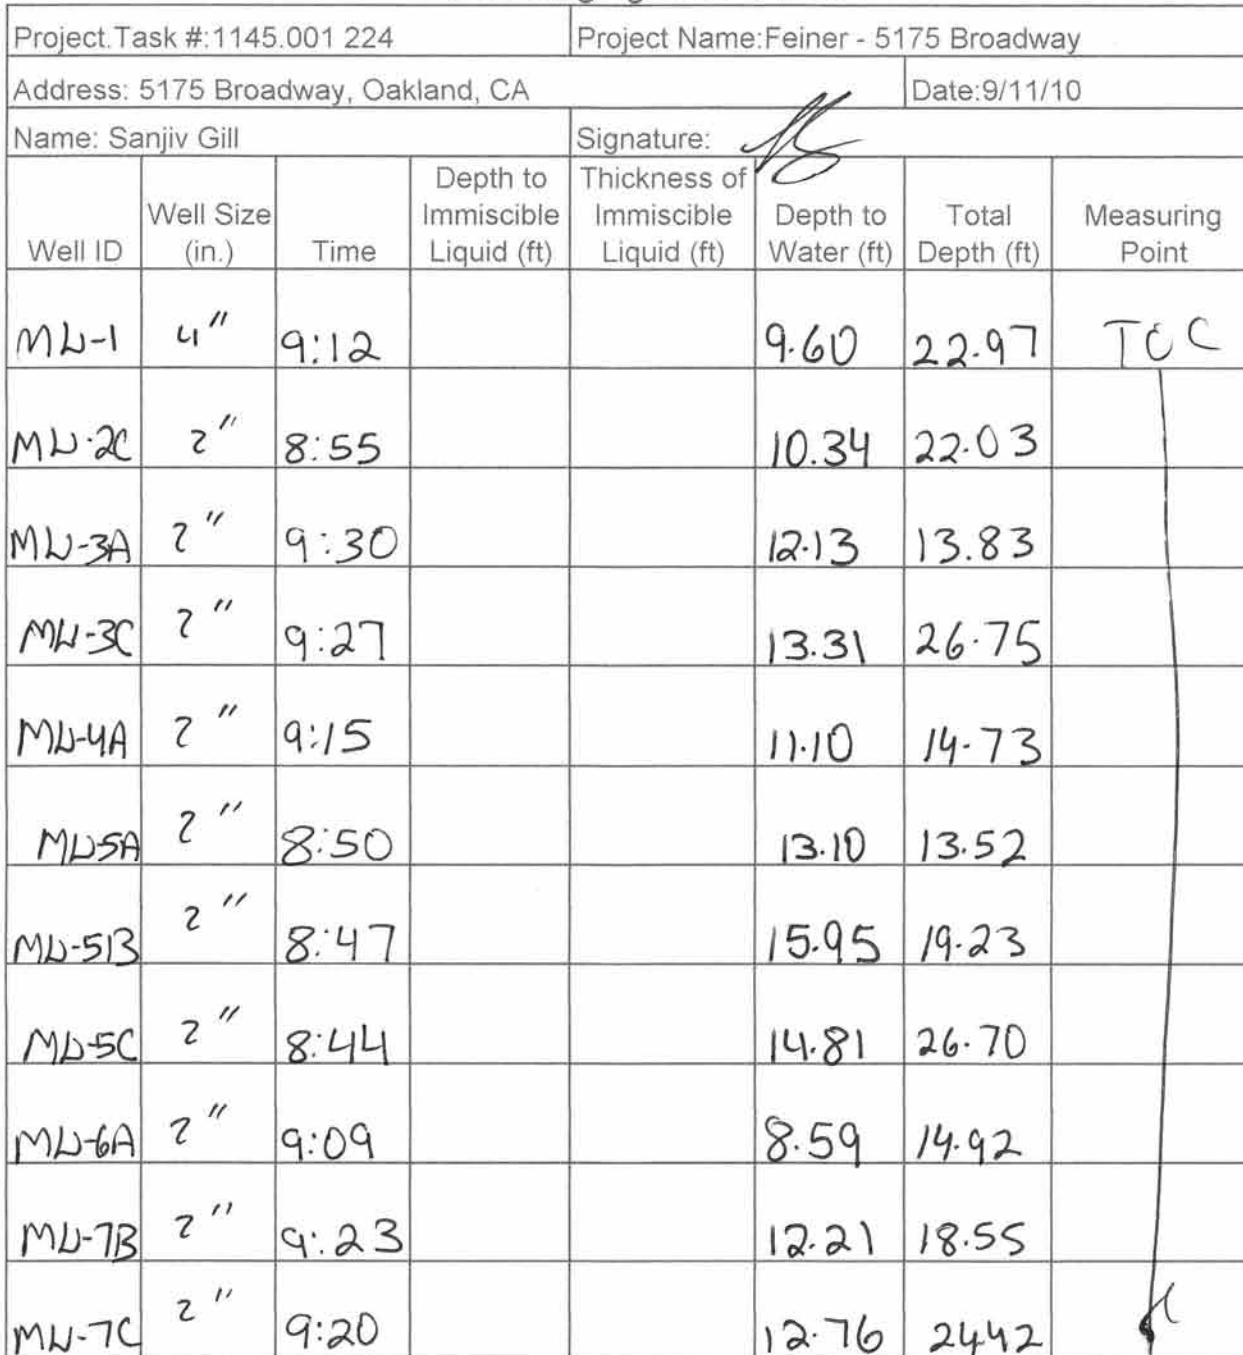 Project.Task #:1145.001 224 Project Name:Feiner - 5175 Broadway
Address: 5175 Broadway, Oakland, CA Date:9/11/10
Name: Sanjiv Gill Signature:
Well ID Well Size (in.) Time Depth to Immiscible Liquid (ft) Thickness of Immiscible Liquid (ft) Depth to Water (ft) Total Depth (ft) Measuring Point
MW-1 4" 9:12 9.60 22.97 TOC
MW-2C 2" 8:55 10.34 22.03
MW-3A 2" 9:30 12.13 13.83
MW-3C 2" 9:27 13.31 26.75
MW-4A 2" 9:15 11.10 14.73
MW-5A 2" 8:50 13.10 13.52
MW-5B 2" 8:47 15.95 19.23
MW-5C 2" 8:44 14.81 26.70
MW-6A 2" 9:09 8.59 14.92
MW-7B 2" 9:23 12.21 18.55
MW-7C 2" 9:20 12.76 24.42